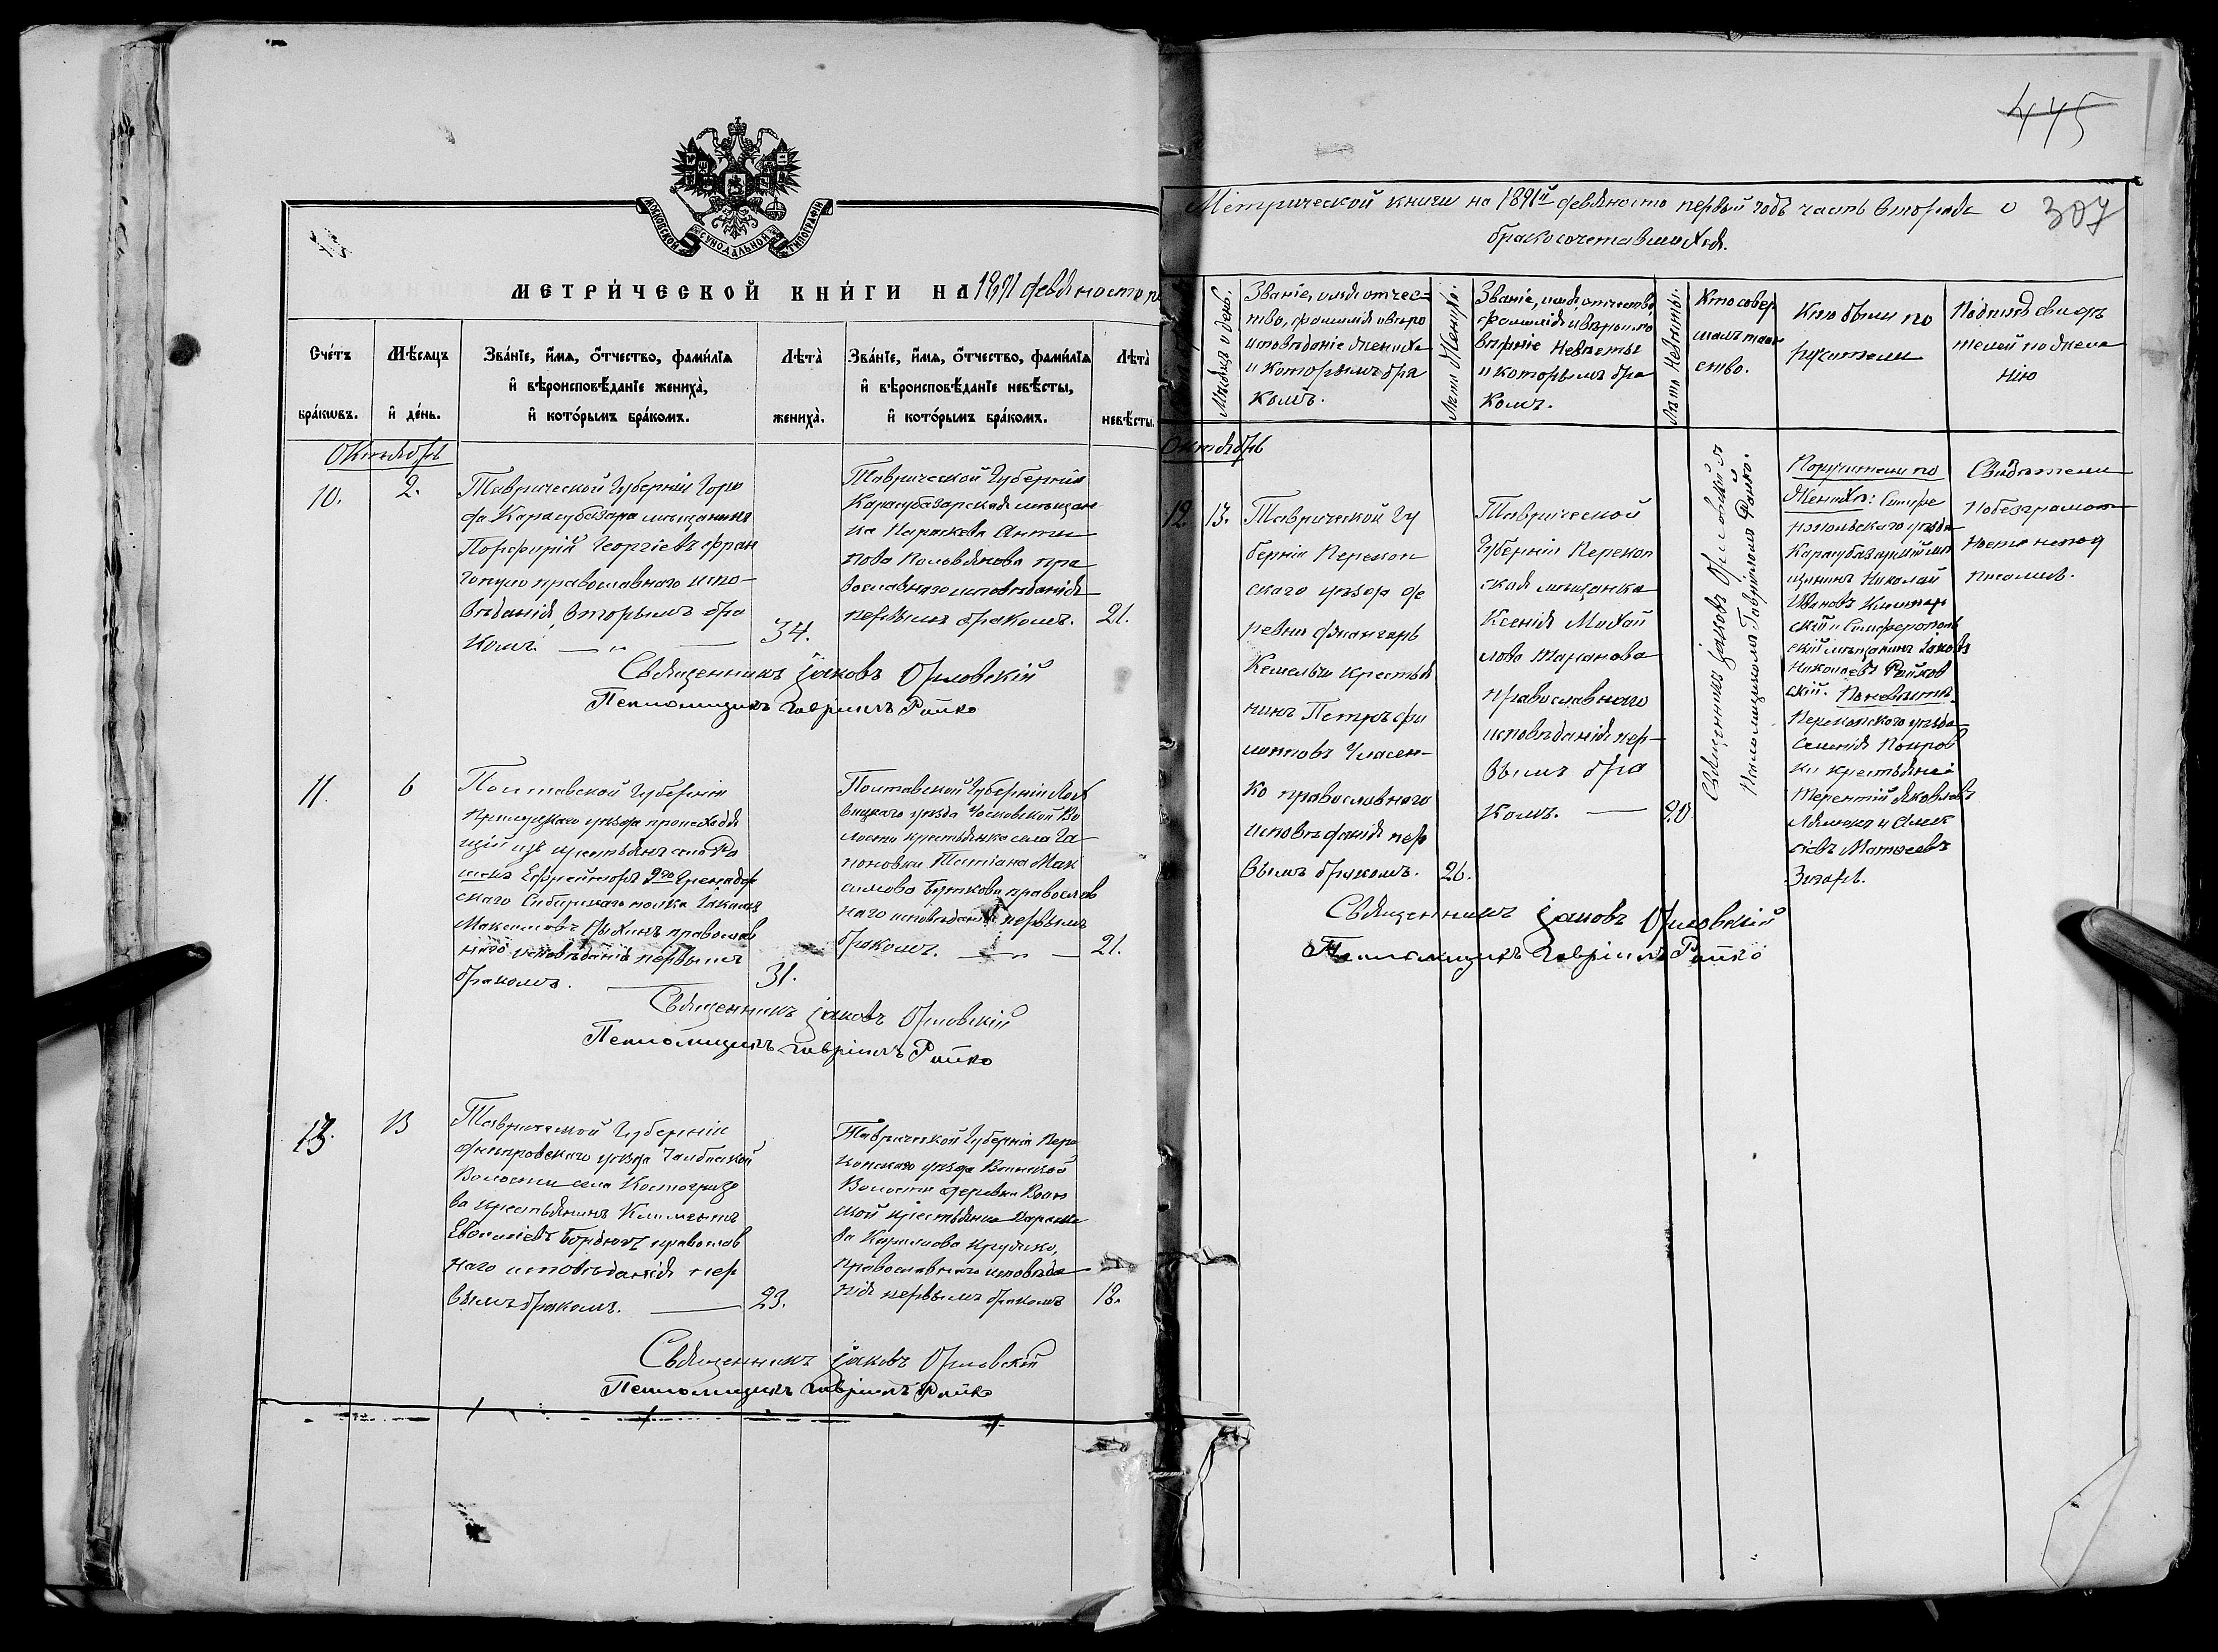 МОСКОВСКОЙ СѴНОДАЛЬНОЙ ТИПОГРАФІИ
МЕТРИ́ЧЕСКОЙ КНИ́ГИ НА 1891 девяносто
Сче́тъ бра́кѡвъ.
Мѣ́сяцъ и҆ де́нь.
Зва́нїе, и҆́мя, ѻ҆́тчество, фами́лїя
и҆ вѣроисповѣ́данїе жениха̀,
и҆ кото́рымъ бра́комъ.
Лѣта̀ жениха̀.
Зва́нїе, и҆́мя, ѻ҆́тчество, фами́лїя
и҆ вѣроисповѣ́данїе невѣ́сты,
и҆ кото́рымъ бра́комъ.
Лѣта̀ невѣ́сты.
Октябрь
10.
2.
Таврической Губерніи Горо
да Карасубазара мѣщанинъ
Порфирій Георгіевъ Фран
гопуло православнаго испо-
вѣданія, вторымъ бра
комъ.
34.
Таврической Губерніи
Карасубазарская мѣщан
ка Параскева Анти
пова пра
вославнаго исповѣданія
первымъ бракомъ.
21.
Священникъ Іаковъ Орловскій
Псаломщикъ Гавріилъ Райко
11.
6
Полтавской Губерніи
Прилуцкаго уѣзда происходя
щій изъ крестьянъ села
Ефрейторъ 9го Гренадер
скаго Сибирскаго полка
Максимовъ православ
наго исповѣданія первымъ
бракомъ.
31.
Полтавской Губерніи Лох
вицкаго уѣзда Во
лости крестьянка села Га
поновки Татіана Мак
симова Буткова православ
наго исповѣданія первымъ
бракомъ.
21.
Священникъ Іаковъ Орловскій
Псаломщикъ Гавріилъ Райко
13.
13
Таврической Губерніи
Днѣпровскаго уѣзда Чалбаской
Волости села Костогрызо
ва крестьянинъ Климентъ
православ
наго исповѣданія пер
вымъ бракомъ.
23.
Таврической Губерніи Пере
копскаго уѣзда Воинской
Волости деревни
крестьянка Параске
ва
православнаго исповѣда
нія первымъ бракомъ
18.
Священникъ Іаковъ Орловскій
Псаломщикъ Гавріилъ Райко
445
307
Метрической книги на 1891й девяносто первый годъ часть вторая о
бракосочетавшихся.
Мѣсяцъ и день.
Званіе, имя отчес-
тво, фамилія и вѣро
исповѣданіе жениха
и которымъ бра
комъ.
Лѣта Жениха.
Званіе, имя, отчество,
фамилія и вѣроиспо
вѣданіе Невѣсты
и которымъ бра
комъ.
Лѣта Невѣсты.
Кто совер
шалъ таин
ство.
Кто были по
ручители
Подпись свидѣ
телей по жела
нію
Октябрь
12.
13.
Таврической Гу
берніи Перекоп
скаго уѣзда де
ревни Джанчаръ
крестья
нинъ Петръ Фи
липповъ Власен-
ко православнаго
исповѣданія пер
вымъ бракомъ.
26.
Таврической
Губерніи Перекоп
ская мѣщанка
Ксенія Михай
лова
православнаго
исповѣданія пер-
вымъ бра
комъ.
20
Священникъ Іаковъ Орловскій
Псаломщикъ Гавріилъ Райко.
Поручители по
Женихѣ: Симфе
ропольскаго уѣзда
Карасубазарскій мѣ
щанинъ Николай
Ивановъ
скій и Симферополь
скій мѣщанинъ Іаковъ
Николаевъ Райков
скій. По невѣстѣ:
Перекопскаго уѣзда
Селенія Покров
ки крестьяне:
Терентій Яковлевъ
и Алек
сѣевъ Матвеевъ
Свидѣтели
по безграмот
ности непод
писались.
Священникъ Іаковъ Орловскій
Псаломщикъ Гавріилъ Райко